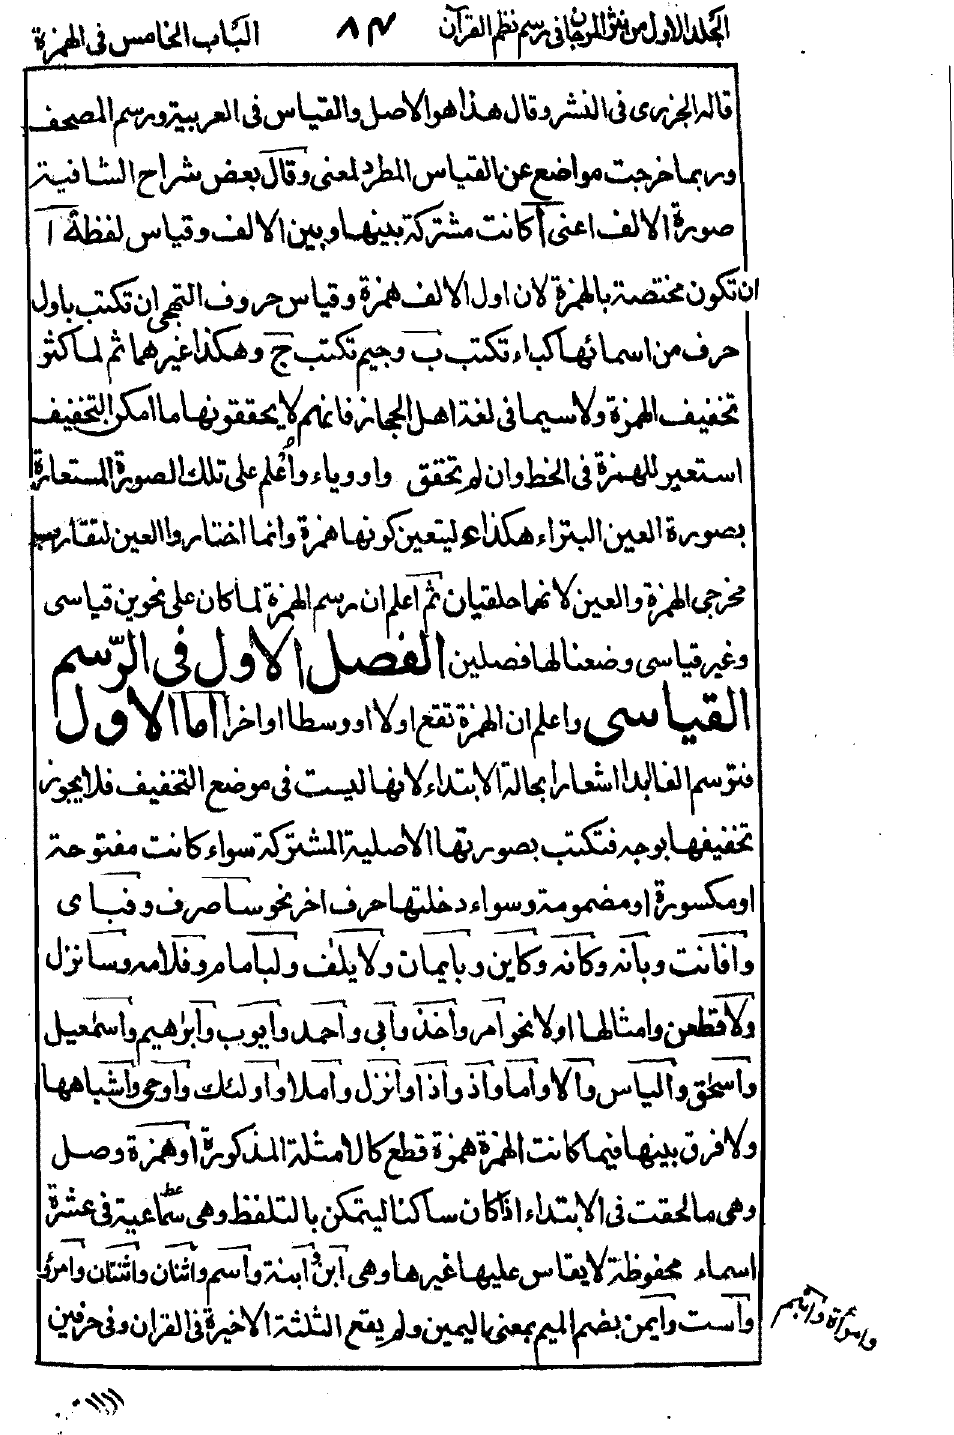 المجلد الاول من نثر المرجان فى رسم نظم القرآن ٨٣ الباب الخامس فى الهمزة
قاله الجزرى فى النشر وقال هذا هو الاصل والقياس فى العربية ورسم المصحف
وربما خرجت مواضع عن القياس المطرد لمعنى وقال بعض شراح الشافية
صورة الالف اعنى ا كانت مشتركة بينها وبين الالف وقياس لفظة ا
ان تكون مختصة بالهمزة لان اول الالف همزة وقياس حروف التهجى ان تكتب باول
حرف من اسمائها كباء تكتب ب وجيم تكتب ج وهكذا غيرهما ثم لما كثر
تخفيف الهمزة ولاسيما فى لغة اهل الحجاز فانهم لا يحققونها ما امكن التخفيف
استعير للهمزة فى الخط وان لم تحقق واو وياء وأُعلم على تلك الصورة المستعارة
بصورة العين البتراء هكذا ء ليتعين كونها همزة وانما اختاروا العين لتقارب
مخرجى الهمزة والعين لانهما حلقيان ثم اعلم ان رسم الهمزة لما كان على نحوين قياسى
وغير قياسى وضعنا لها فصلين الفصل الاول فى الرّسم
القياسى واعلم ان الهمزة تقع اولا او وسطا او اخرا اما الاول
فترسم الفا ابدا اشعارا بحالة الابتداء لانها ليست فى موضع التخفيف فلا يجوز
تخفيفها بوجه فتكتب بصورتها الاصلية المشتركة سواء كانت مفتوحة
او مكسورة او مضمومة وسواء دخلتها حرف اخر نحو ساصرف وفباى
وافانت وبانه وكانه وكاين وبايمان ولايلف ولبامام وفلامه وسانزل
ولاقطعن وامثالها اولا نحو امر واخذ وابى واحمد وايوب وابرٰهيم واسمٰعيل
واسحٰق والياس والا واما واذ واذا وانزل واملا واولئك واوحى واشباهها
ولا فرق بينها فيما كانت الهمزة همزة قطع كالامثلة المذكورة او همزة وصل
وهى ما لحقت فى الابتداء اذا كان ساكنا ليتمكن بالتلفظ وهى سماعية فى عشرة
اسماء محفوظة لا يقاس عليها غيرها وهى ابن وابنة واسم واثنان واثنتان وامرئ
وامرأة وابنم
واست وايمن بضم الميم بمعنى اليمين ولم يقع الثلثة الاخيرة فى القران وفى حرفين